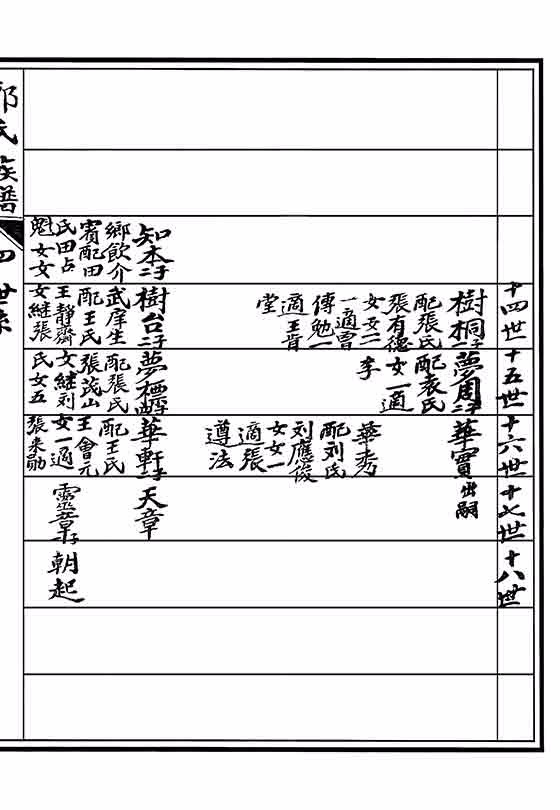 十四世
十五世
十六世
十七世
十八世
樹桐子
配張氏
張有德
女女二
一適曹
傳勉一
適王肯
堂
夢周二子
配袁氏
女一適
李
華實
出嗣
華秀
配刘氏
刘應俊
女女一
適張
遵法
知本二子
鄉飲介
賓配田
氏田占
魁女女
樹台二子
武庠生
配王氏
王靜齋
女継張
夢栖
配張氏
張茂山
女継刘
氏女五
華軒二子
配王氏
王會元
女一適
張来勛
天章
靈章子
朝起
氏族譜
四世系